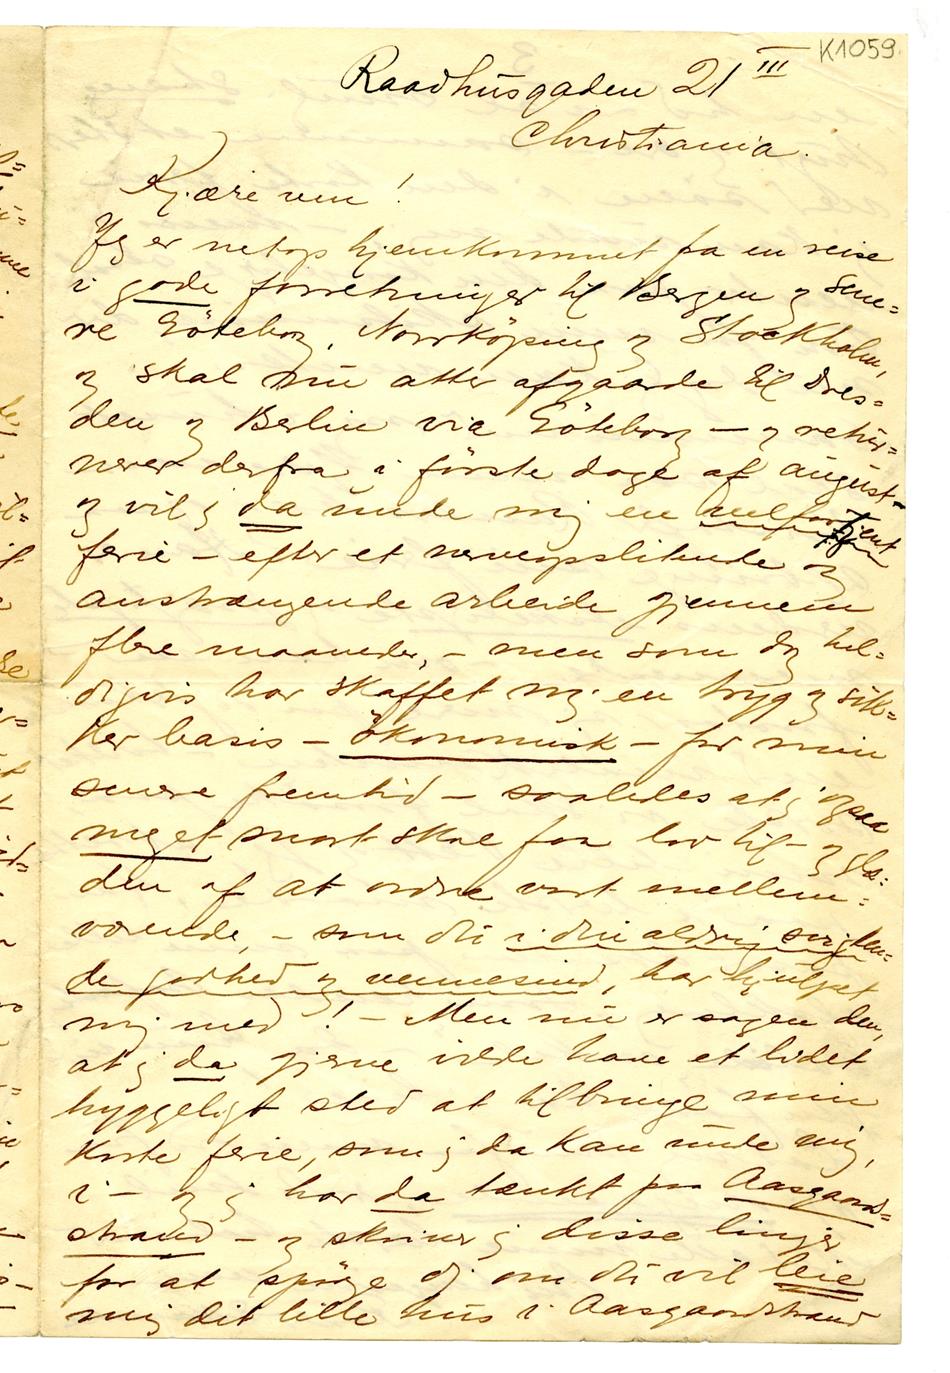 K1059
Raadhusgaden 21 III
Christiania.
Kjære ven!
Jeg er netop hjemkommet fra en reise
i gode forretninger til Bergen og sene-
re Göteborg, Norrköping og Stockholm,
og skal nu atter afgaarde til Dres-
den og Berlin via Göteborg – og retur-
nerer derfra i förste dage af august –
og vil j da unde mig en velfortjent
ferie – efter et nerveopslitende og
anstrængende arbeide gjennem
flere maaneder, – men som dog hel-
digvis har skaffet mig en tryg og sik-
ker basis – ökonomisk – for min
senere fremtid – saaledes at j ogsaa
meget snart skal faa lov til – og glæ-
den af at ordne vort mellem-
værende, – som du i din aldrig svigten-
de godhed og vennesind, har hjulpet
mig med! – Men nu er sagen den,
at j da gjerne vilde have et lidet
hyggeligt sted at tilbringe min
korte ferie, som j da kan unde mig,
i – og j har da tænkt paa Aasgaard-
strand – og skriver j disse linjer
for at spörge dig om du vil leie
mig dit lille hus i Aasgaardstrand